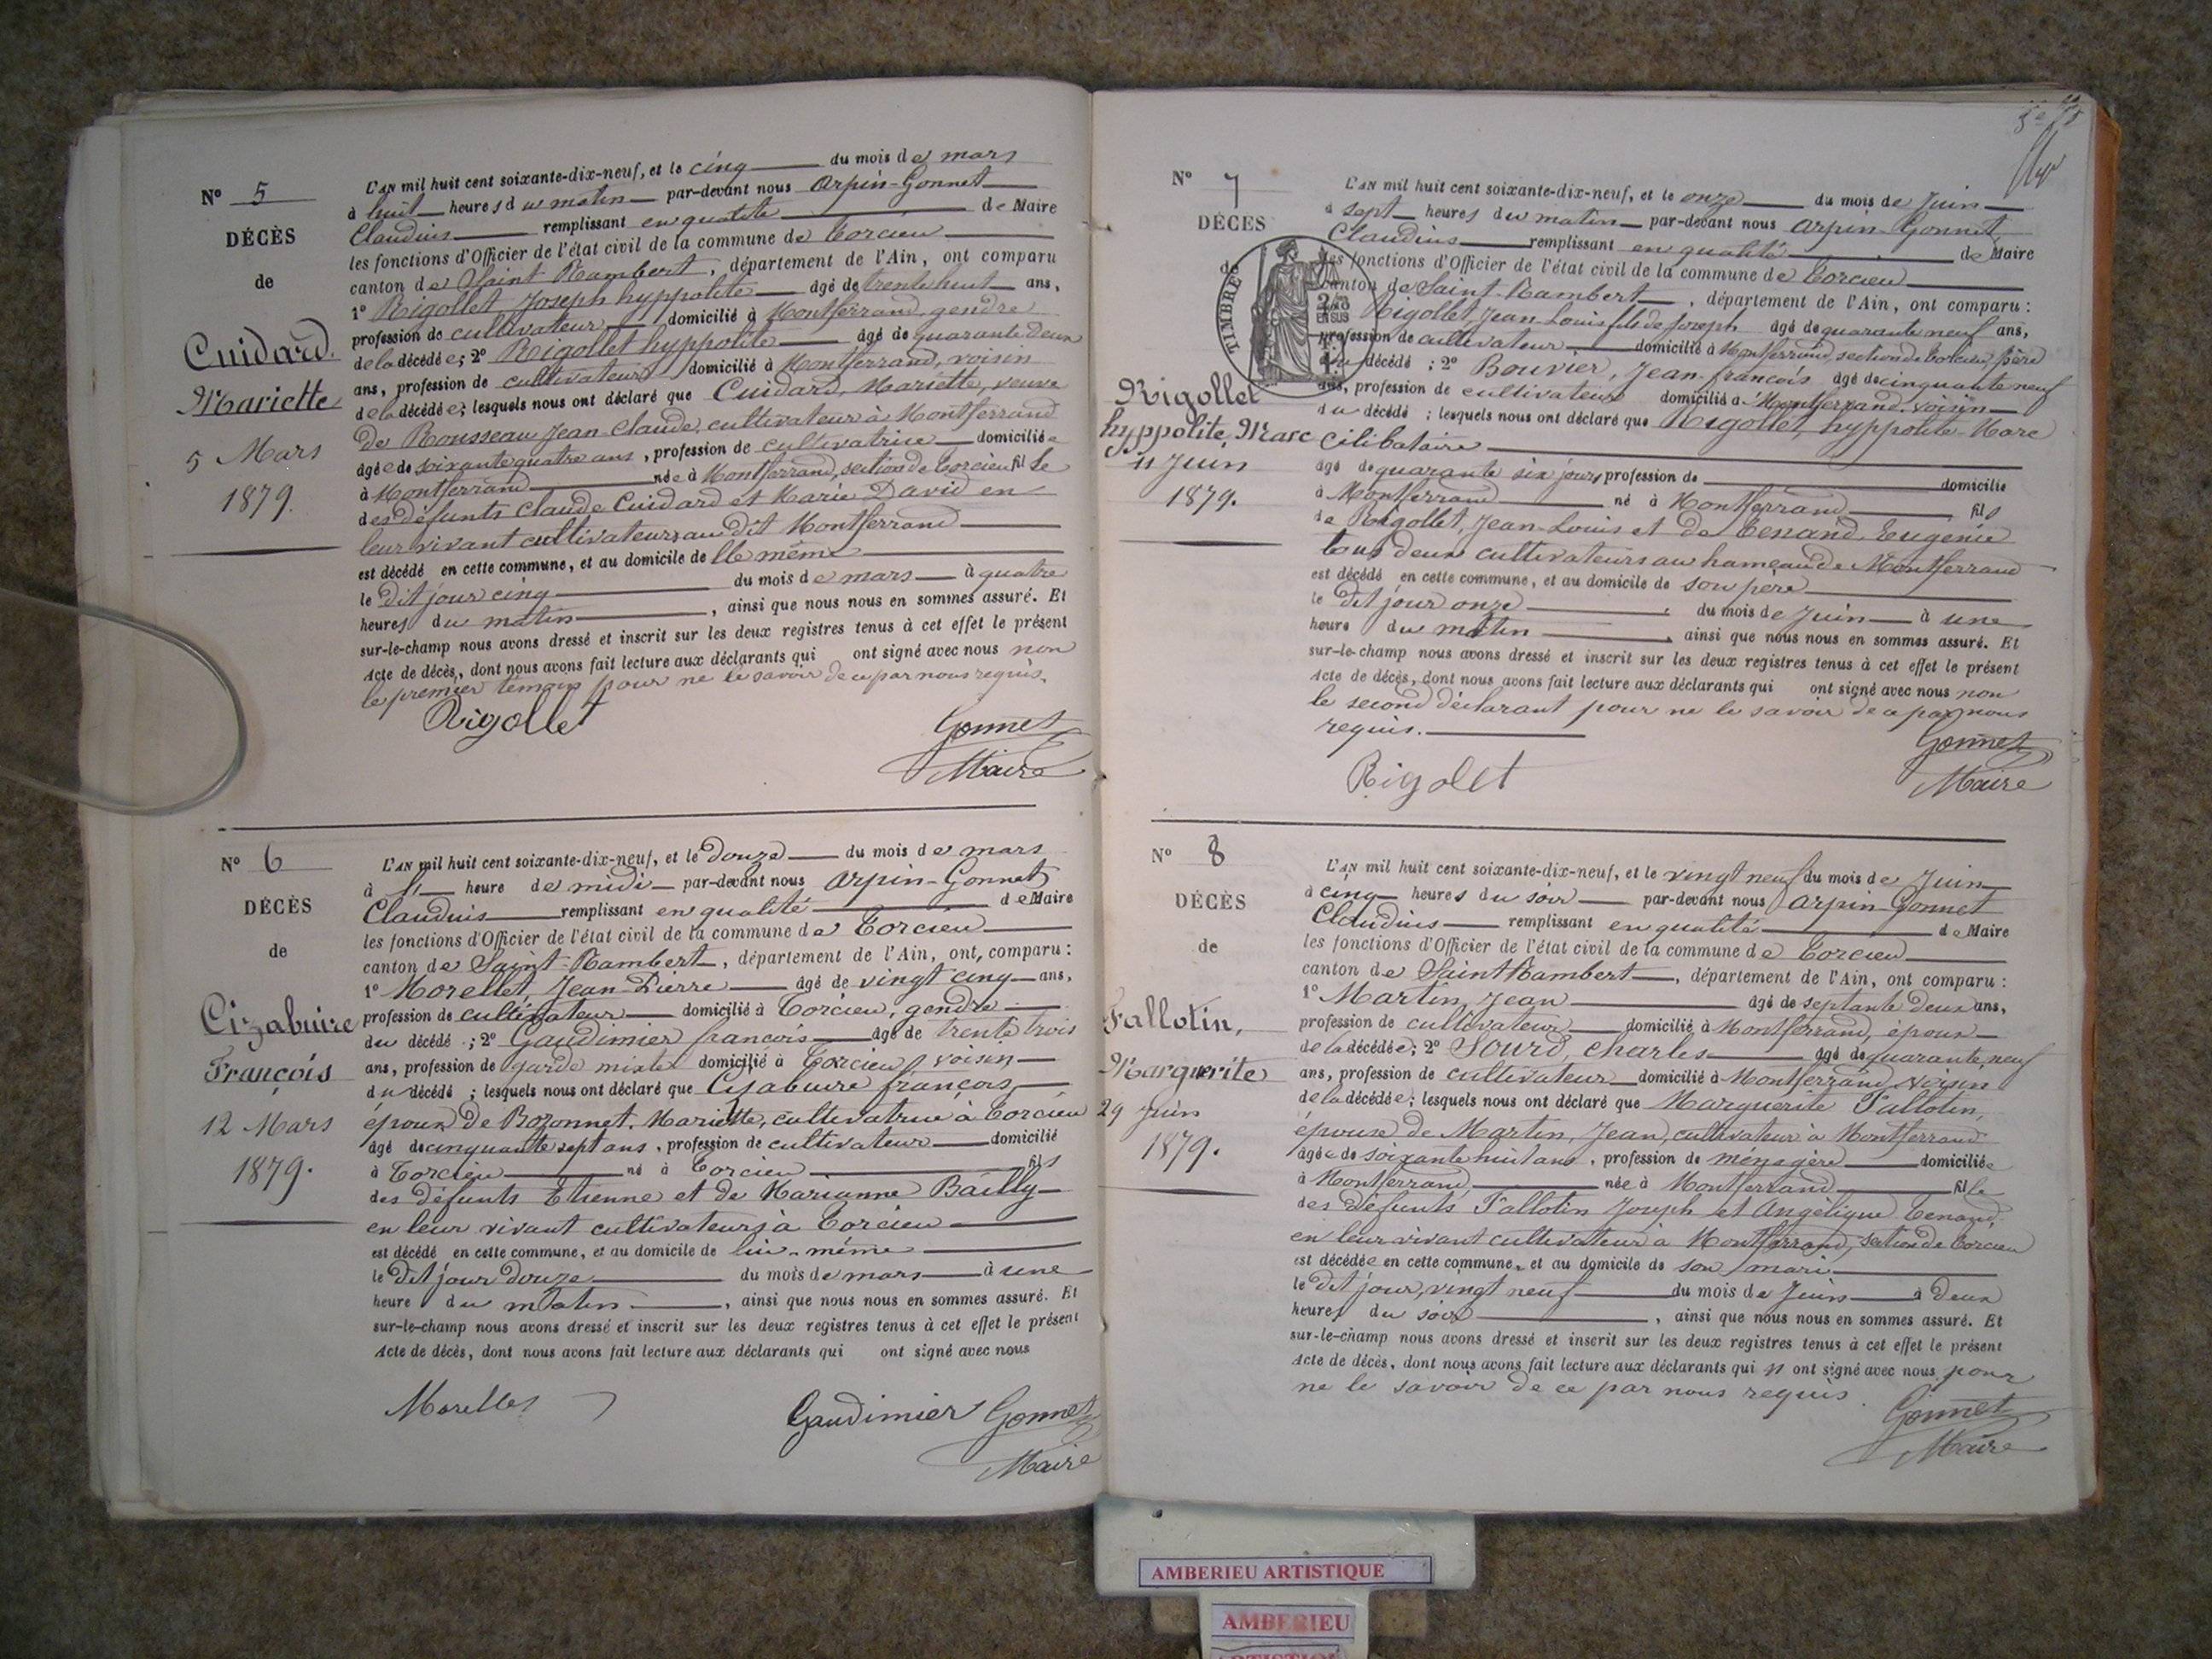 N° 5
DÉCÈS
de
Cuidard
Mariette
5 Mars
1879.
L'AN mil huit cent soixante-dix-neuf, et le cinq du mois de mars
à huit heures du matin par-devant nous Arpin-Gonnet
Claudius remplissant en qualité de Maire
les fonctions d'Officier de l'état civil de la commune de Torcieu
canton de Saint-Rambert, département de l'Ain, ont comparu
1° Rigollet Joseph hyppolite âgé de trente huit ans,
profession de cultivateur domicilié à Montferrand, gendre
de la décédée; 2° Rigollet hyppolite âgé de quarante deux
ans, profession de cultivateur domicilié à Montferrand, voisin
de la décédée; lesquels nous ont déclaré que Cuidard, Mariette, veuve
de Rousseau Jean-Claude, cultivateur à Montferrand
âgée de soixante quatre ans, profession de cultivatrice domiciliée
à Montferrand née à Montferrand, section de Torcieu fille
des défunts Claude Cuidard et Marie David en
leur vivant cultivateurs au dit Montferrand
est décédé en cette commune, et au domicile de lle même
le dit jour cinq du mois de mars à quatre
heures du matin, ainsi que nous nous en sommes assuré. Et
sur-le-champ nous avons dressé et inscrit sur les deux registres tenus à cet effet le présent
Acte de décès, dont nous avons fait lecture aux déclarants qui ont signé avec nous non
le premier témoin pour ne le savoir de ce par nous requis.
Rigollet Gonnet
Maire
N° 6
DÉCÈS
de
Cizabuire
François
12 Mars
1879.
L'AN mil huit cent soixante-dix-neuf, et le douze du mois de mars
à heure de midi par-devant nous Arpin-Gonnet
Claudius remplissant en qualité de Maire
les fonctions d'Officier de l'état civil de la commune de Torcieu
canton de Saint-Rambert, département de l'Ain, ont comparu:
1° Morellet, Jean-Pierre âgé de vingt cinq ans,
profession de cultivateur domicilié à Torcieu, gendre
du décédé; 2° Gaudimier françois âgé de trente trois
ans, profession de garde mixte domicilié à Torcieu, voisin
du décédé; lesquels nous ont déclaré que Cizabuire françois,
époux de Bozonnet, Mariette, cultivatrice à Torcieu
âgé de cinquante sept ans, profession de cultivateur domicilié
à Torcieu né à Torcieu fils
des défunts Etienne et de Marianne Bailly
en leur vivant cultivateurs à Torcieu
est décédé en cette commune, et au domicile de lui-même
le dit jour douze du mois de mars à une
heure du matin, ainsi que nous nous en sommes assuré. Et
sur-le-champ nous avons dressé et inscrit sur les deux registres tenus à cet effet le présent
Acte de décès, dont nous avons fait lecture aux déclarants qui ont signé avec nous
Morellet Gaudimier Gonnet
Maire
N° 7
DÉCÈS
de
TIMBRE
Rigollet
hyppolite, Marc
11 Juin
1879.
L'AN mil huit cent soixante-dix-neuf, et le onze du mois de Juin
à sept heures du matin par-devant nous Arpin-Gonnet
Claudius remplissant en qualité de Maire
les fonctions d'Officier de l'état civil de la commune de Torcieu
canton de Saint-Rambert, département de l'Ain, ont comparu:
Rigollet, Jean-Louis fils de Joseph âgé de quarante neuf ans,
profession de cultivateur domicilié à Montferrand, section de Torcieu, père
du décédé; 2° Bouvier, Jean-françois âgé de cinquante neuf
ans, profession de cultivateur domicilié à Montferrand, voisin
du décédé; lesquels nous ont déclaré que Rigollet, hyppolite-Marc
célibataire
âgé de quarante six jours profession de domicilié
à Montferrand né à Montferrand fils
de Rigollet, Jean-Louis et de Tenand, Eugénie
tous deux cultivateurs au hameau de Montferrand
est décédé en cette commune, et au domicile de son père
le dit jour onze du mois de Juin à une
heure du matin, ainsi que nous nous en sommes assuré. Et
sur-le-champ nous avons dressé et inscrit sur les deux registres tenus à cet effet le présent
Acte de décès, dont nous avons fait lecture aux déclarants qui ont signé avec nous non
le second déclarant pour ne le savoir de ce par nous
requis.
Rigolet Gonnet
Maire
N° 8
DÉCÈS
de
Fallotin,
Marguerite
29 Juin
1879.
L'AN mil huit cent soixante-dix-neuf, et le vingt neuf du mois de Juin
à cinq heures du soir par-devant nous Arpin-Gonnet
Claudius remplissant en qualité de Maire
les fonctions d'Officier de l'état civil de la commune de Torcieu
canton de Saint Rambert, département de l'Ain, ont comparu:
1° Martin, Jean âgé de septante deux ans,
profession de cultivateur domicilié à Montferrand, époux
de la décédée; 2° Sourd, Charles âgé de quarante neuf
ans, profession de cultivateur domicilié à Montferrand, voisin
de la décédée; lesquels nous ont déclaré que Marguerite Fallotin,
épouse de Martin, Jean, cultivateur à Montferrand
âgée de soixante huit ans, profession de ménagère domiciliée
à Montferrand née à Montferrand fille
des défunts Fallotin Joseph et Angélique Tenand
en leur vivant cultivateur à Montferrand, section de Torcieu
est décédée en cette commune, et au domicile de son mari
le dit jour, vingt neuf du mois de Juin à deux
heures du soir, ainsi que nous nous en sommes assuré. Et
sur-le-champ nous avons dressé et inscrit sur les deux registres tenus à cet effet le présent
Acte de décès, dont nous avons fait lecture aux déclarants qui n'ont signé avec nous pour
ne le savoir de ce par nous requis.
Gonnet
Maire
AMBERIEU ARTISTIQUE
AMBERIEU
ARTISTIQUE